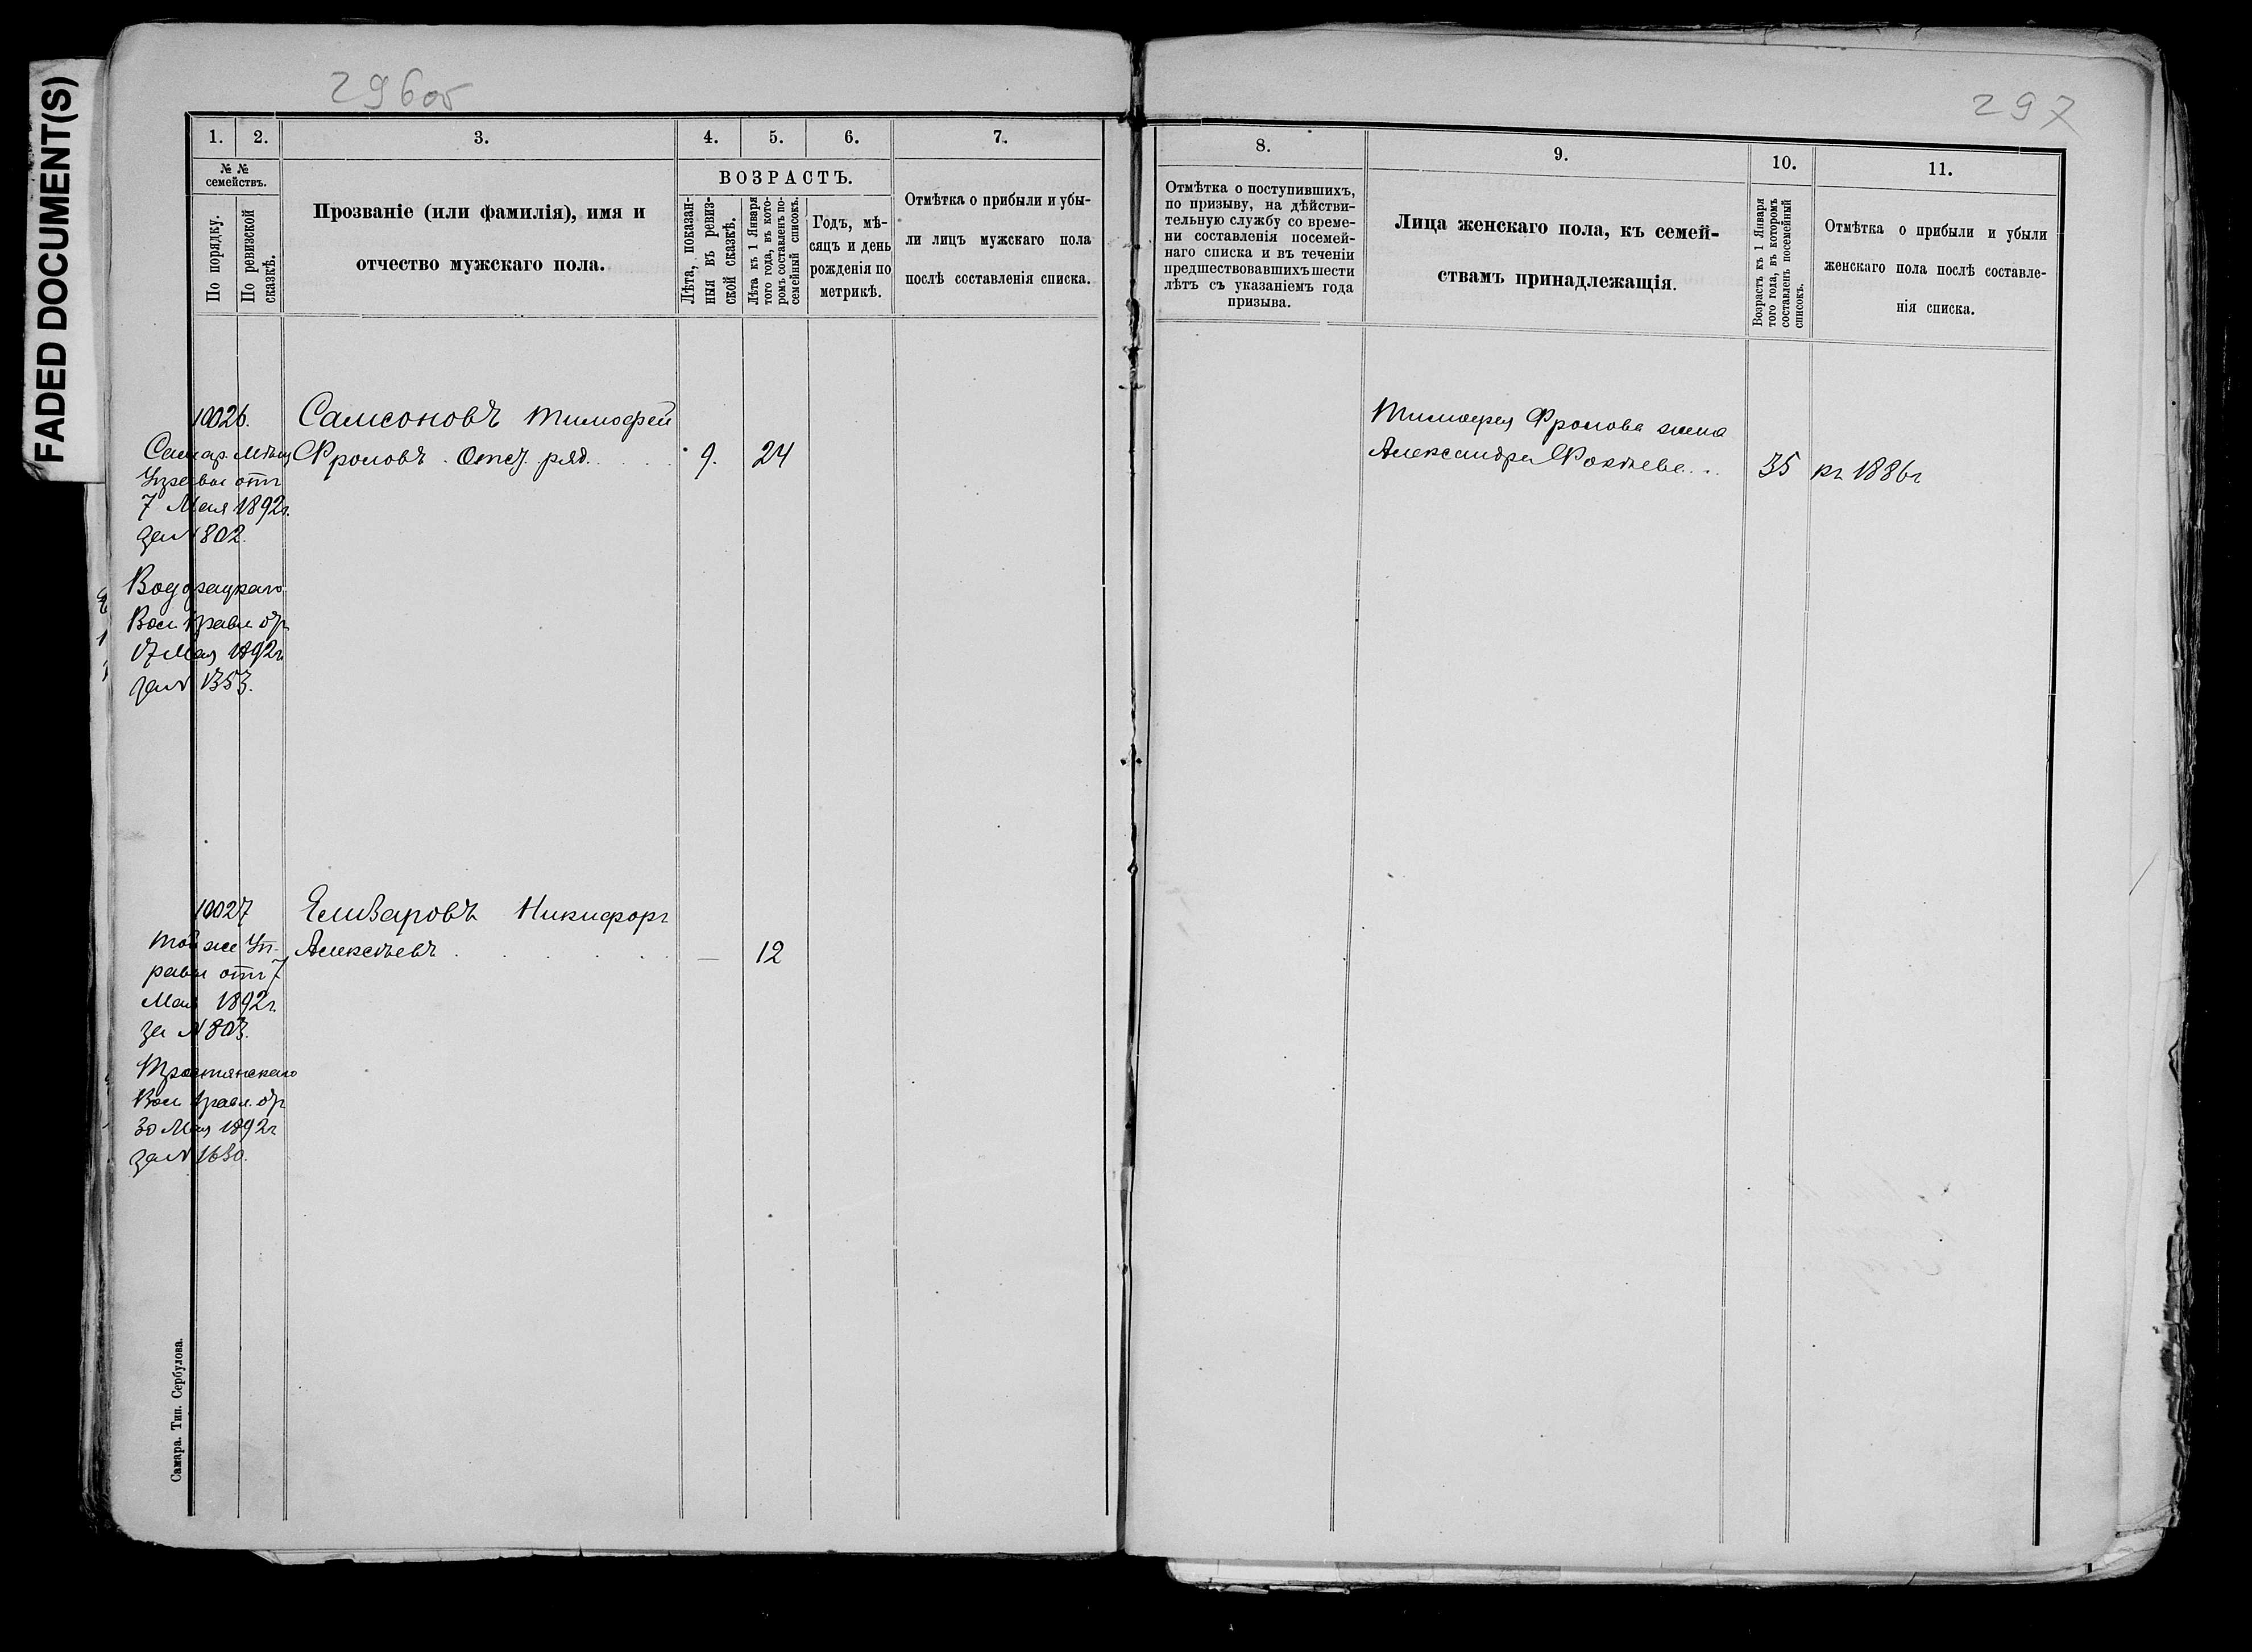 FADED DOCUMENT(S)
296об
1.
2.
3.
4.
5.
6.
7.
№ №
семействъ.
По порядку.
По ревизской
сказкѣ.
Прозваніе (или фамилія), имя и
отчество мужскаго пола.
ВОЗРАСТЪ.
Лѣта, показан-
ныя въ ревиз-
ской сказкѣ.
Лѣта къ 1 Января
того года, въ кото-
ромъ составленъ по-
семейный списокъ.
Годъ, мѣ-
сяцъ и день
рожденія по
метрикѣ.
Отмѣтка о прибыли и убы-
ли лицъ мужскаго пола
послѣ составленія списка.
10026.
Самсоновъ Тимофей
Самар. Мѣщ
Фроловъ. Отст. ряд.
9.
24
Управы отъ
7 Мая 1892г.
за № 802.
Вол. Правл. отъ
17 Мая 1892г.
за № 1353.
10027
Никифоръ
той же Уп-
Алексѣевъ
—
12
равы отъ 7
Мая 1892г.
за № 803.
Тростянскаго
Вол. Правл. отъ
30 Мая 1892г
за № 1630.
Самара. Тип. Сербулова.
297
8.
9.
10.
11.
Отмѣтка о поступившихъ,
по призыву, на дѣйстви-
тельную службу со време-
ни составленія посемей-
наго списка и въ теченіи
предшествовавшихъ шести
лѣтъ съ указаніемъ года
призыва.
Лица женскаго пола, къ семей-
ствамъ принадлежащія.
Возрастъ къ 1 Января
того года, въ которомъ
составленъ посемейный
списокъ.
Отмѣтка о прибыли и убыли
женскаго пола послѣ составле-
нія списка.
Тимофея Фролова жена
Александра
35
къ 1886г